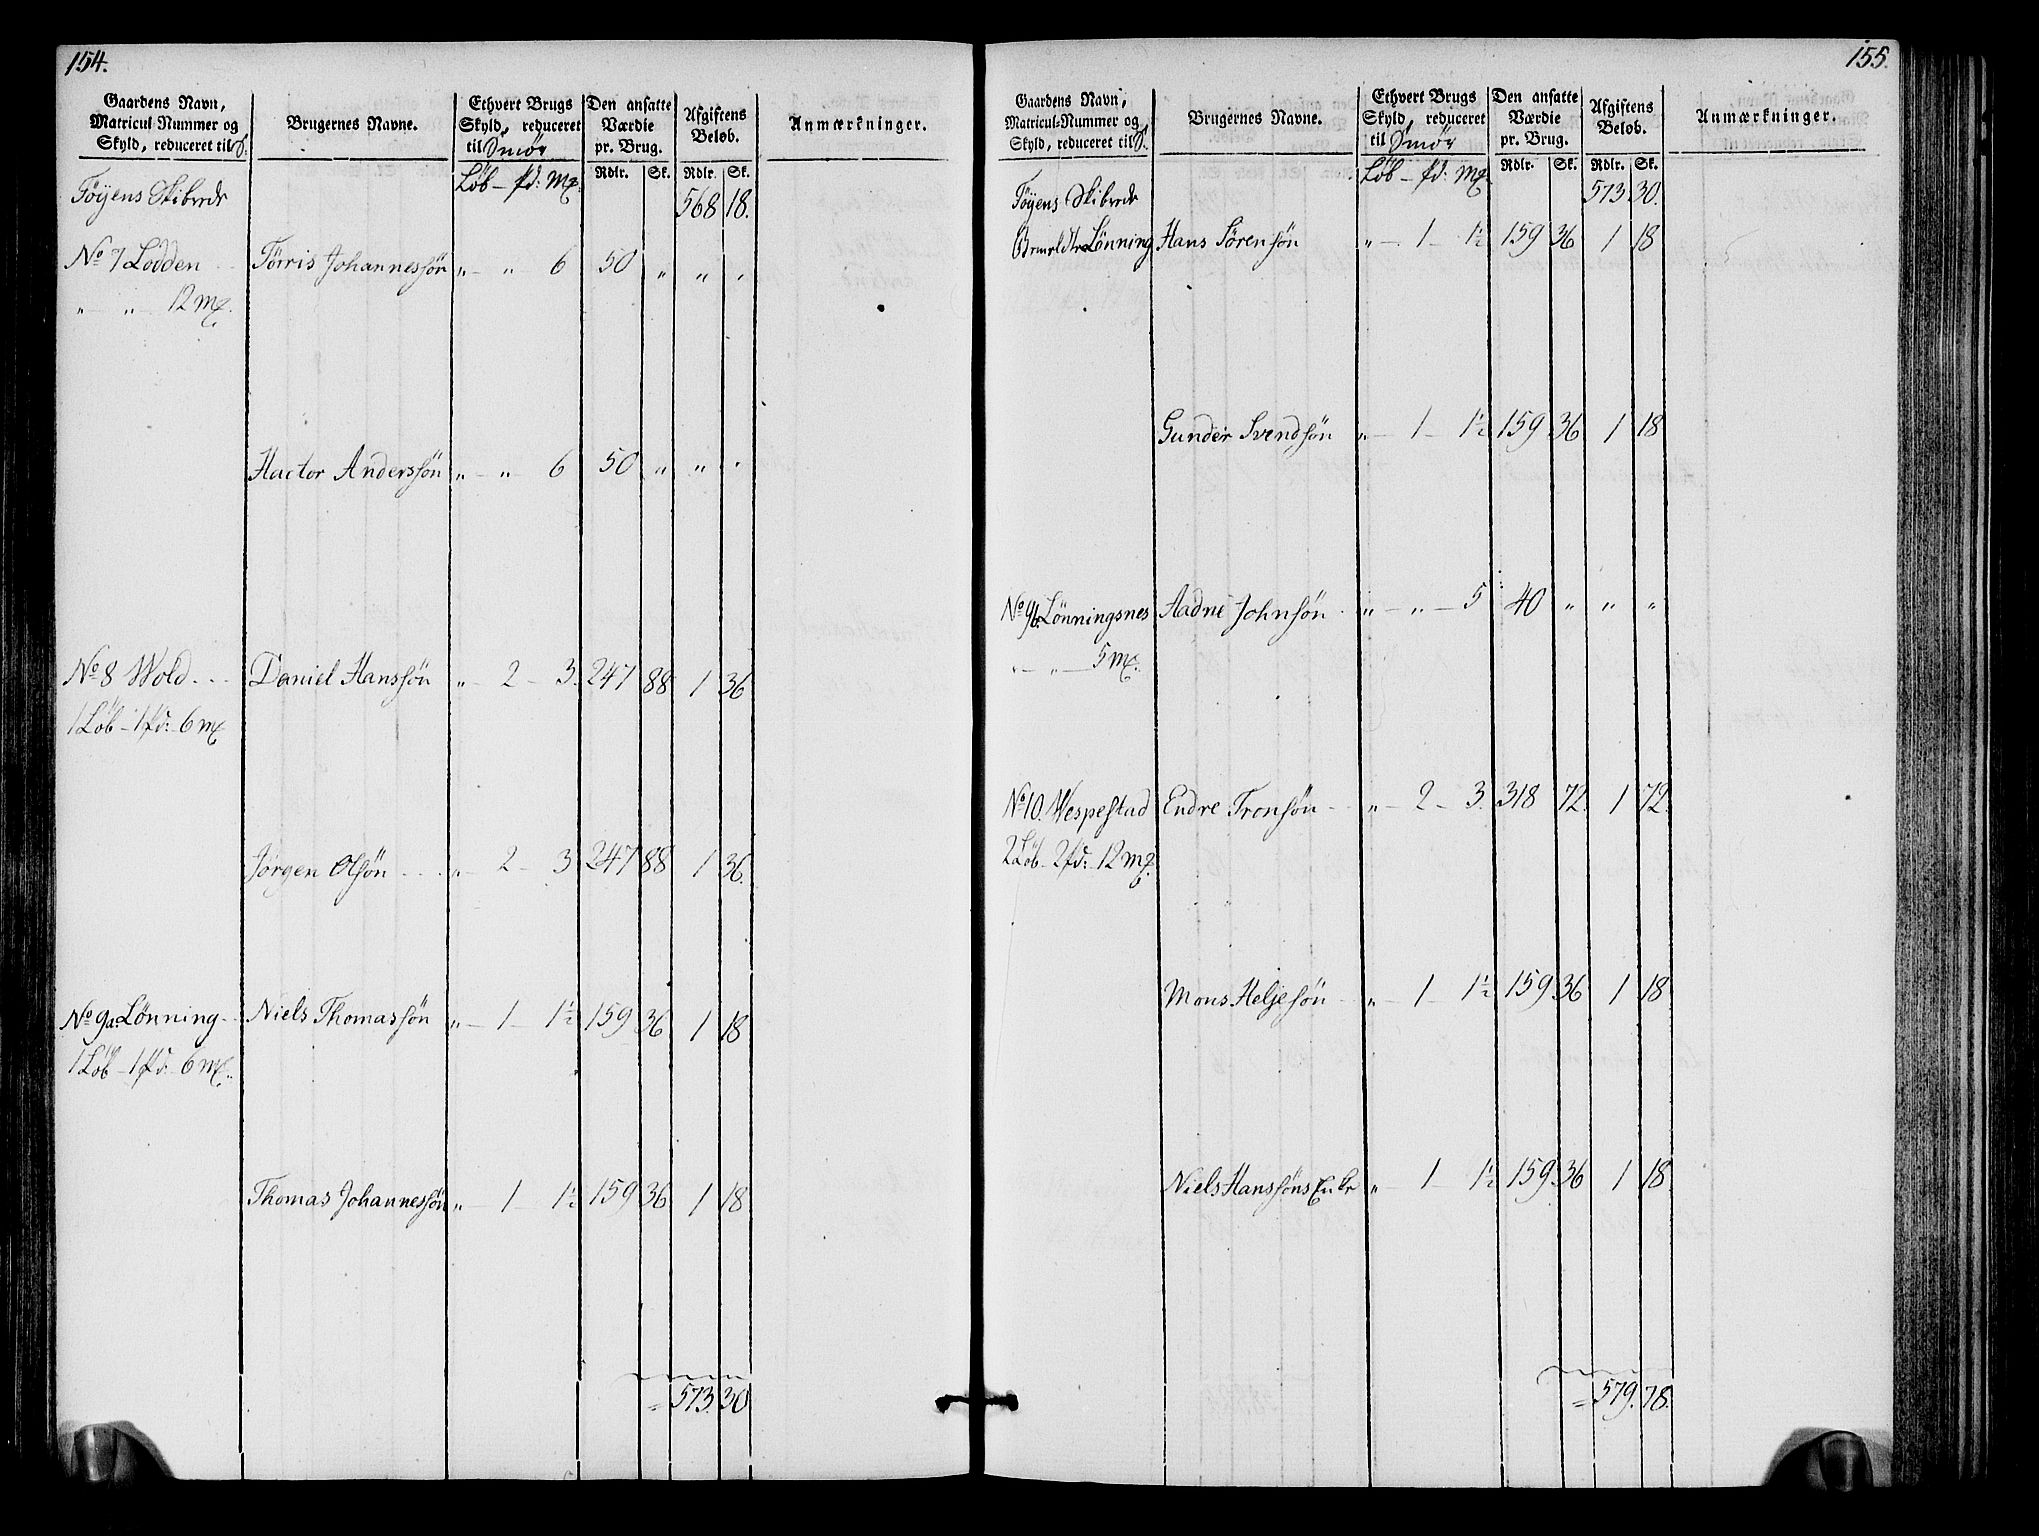 154.
Gaardens Navn, Matricul-Nummer og Skyld, reduceret til S.
Brugernes Navne.
Ethvert Brugs Skyld, reduceret til Smör
Den ansatte Værdie pr. Brug.
Afgiftens Beløb.
Anmærkninger.
Löb — pd: mf. Rdlr. Sk. Rdlr. Sk.
Föyens Skibrede 568 18.
No 7 Lodden Törris Johannessön „ — „ 6 50 „ „ „
„ — „ — 12 mf.
Hactor Anderssön „ — „ 6 50 „ „ „
No 8 Wold Daniel Hanssön „ — 2 — 3. 247 88 1 36
1 Löb — 1 pd: 6 mf
Jörgen Olsön „ — 2 — 3 247 88 1 36.
No 9a. Lönning Niels Thomassön „ — 1 — 1½ 159 36 1 18
1 Löb — 1 pd. 6 mf.
Thomas Johannessön „ — 1 — 1½ 159 36 1 18
= 573. 30
155.
Gaardens Navn, Matricul-Nummer og Skyld, reduceret til S.
Brugernes Navne.
Ethvert Brugs Skyld, reduceret til Smör
Den ansatte Værdie pr. Brug.
Afgiftens Beløb.
Anmærkninger.
Löb — pd: mf Rdlr. Sk. Rdlr. Sk.
Föyens Skibrede 573 30.
Lönning Hans Sörensön „ — 1 — 1½ 159 36 1 18
Gunder Svendsön „ — 1 — 1½ 159 36 1 18
No 9b. Lönningsnes Aadne Johnsön „ — „ — 5 40 „ „ „
„ — „ — 5 mf.
No 10. Wespestad Endre Tronsön „ — 2 — 3. 318 72. 1 72.
2 Löb — 2 pd: 12 mf.
Mons Heljesön „ — 1 — 1½ 159 36 1 18
Niels Hanssöns Enke „ — 1 — 1½ 159. 36 1 18
= 579. 78.